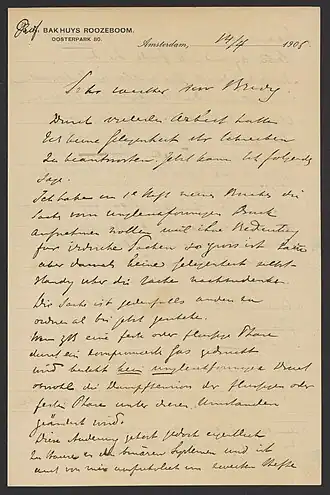 Prof. BAKHUYS ROOZEBOOM.
OOSTERPARK 80.
Amsterdam, 14/4 1905
Sehr werther Herr
Durch vielerlei Arbeit hatte
Ich keine Gelegenheit Ihr Schreiben
zu beantworten. Jetzt kann Ich folgendes
sage.
Ich habe im 1e Heft neues Buches die
Sache vom ungleichförmigen Druck
aufnehmen wollen weil ihre Bedeutung
für irdische Sachen so gross ist
aber damals keine Gelegenheit selbst-
standig über die Sache nachzudenken.
Die Sache ist jedenfalls anders
als bis jetzt
Man hat eine feste oder flussige Phase
durch ein comprimirte Gas gedruckt
und besteht kein ungleichformiger Druck
obwohl die Dampftension der flussigen oder
festen Phase unter diesen Umstanden
geändert wird.
Diese Anderung gehort jedoch eigentlich
zu den binären Systemen und ist
auch von mir ausfuhrlich im zweiten Hefte